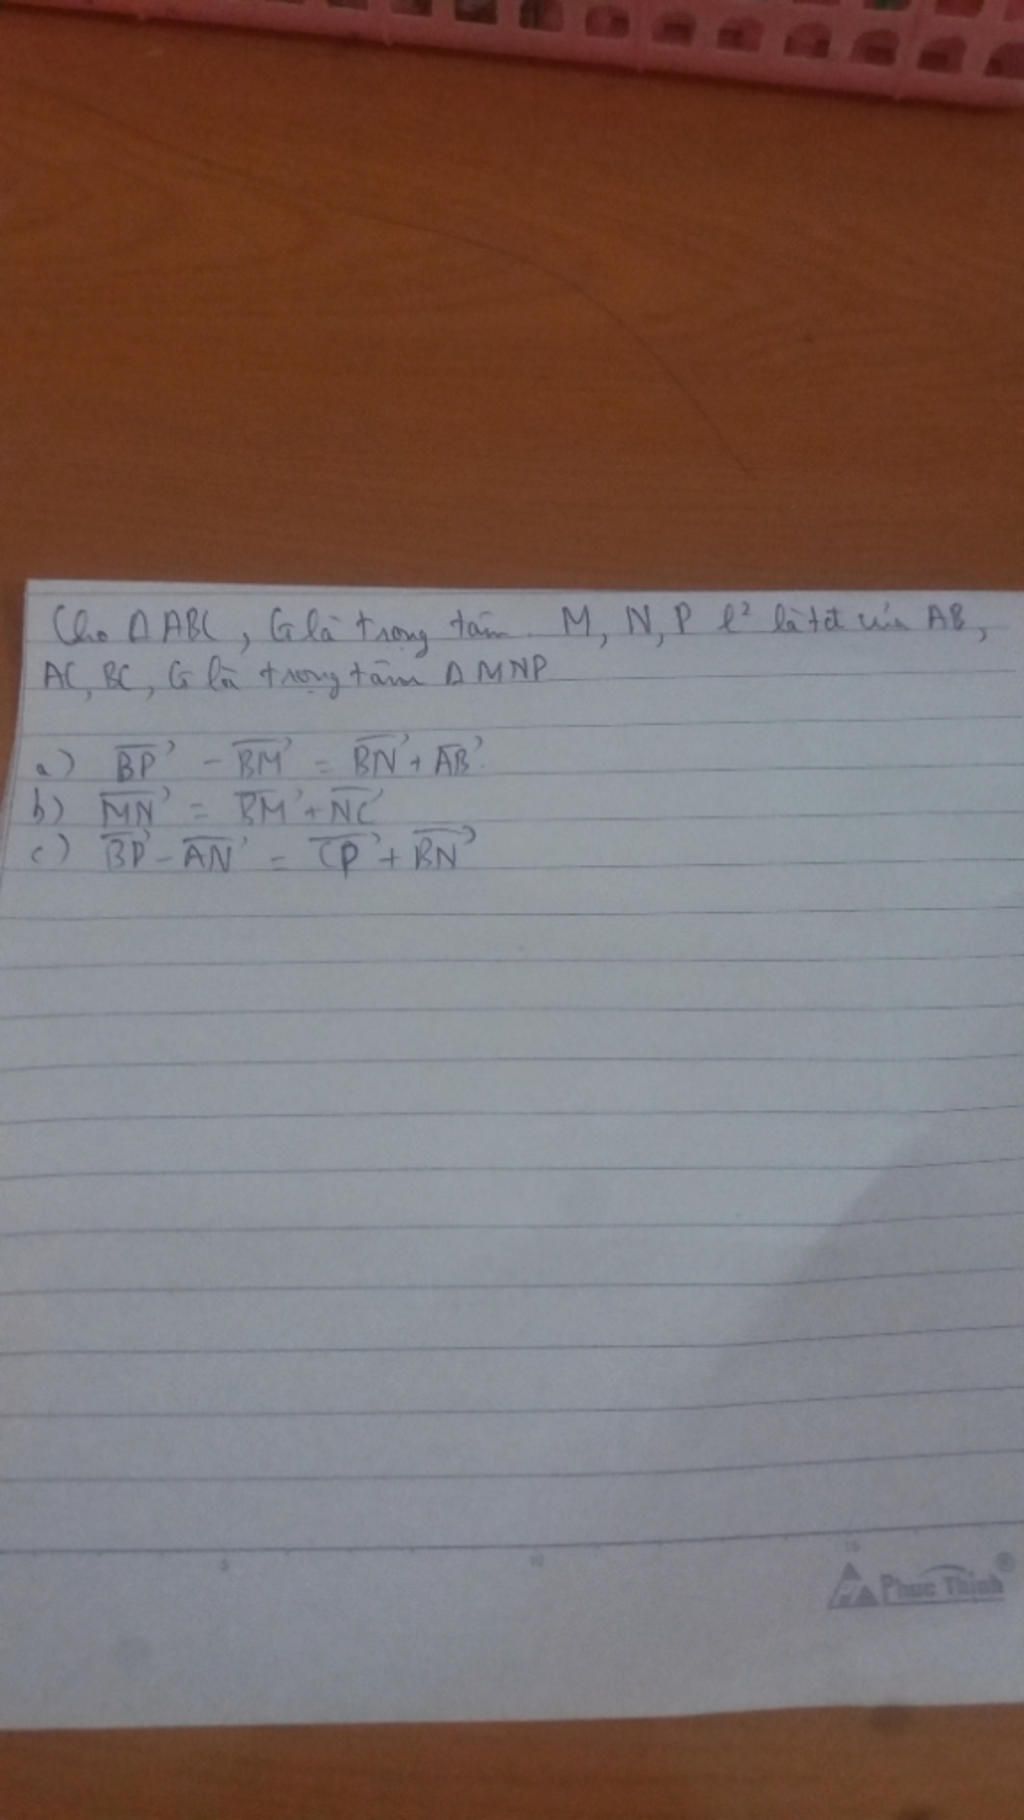 Cho Δ ABC, G là trọng tâm. M, N, P l² là tđ của AB,
AC, BC, G là trọng tâm Δ MNP
a) BP→ - BM→ = BN→ + AB→
b) MN→ = BM→ + NC→
c) BP→ - AN→ = CP→ + BN→
5 10 15
Phuc Thinh®